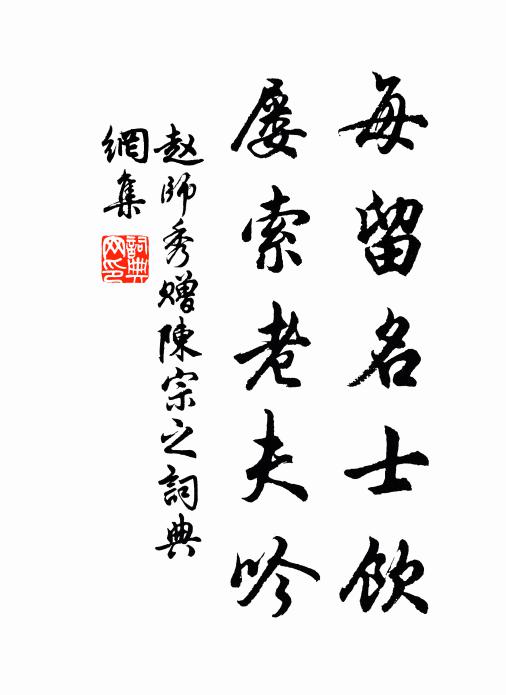 每留名士飲
屡索老夫吟
赵師秀贈陳宗之詞典
網集
詞典網印